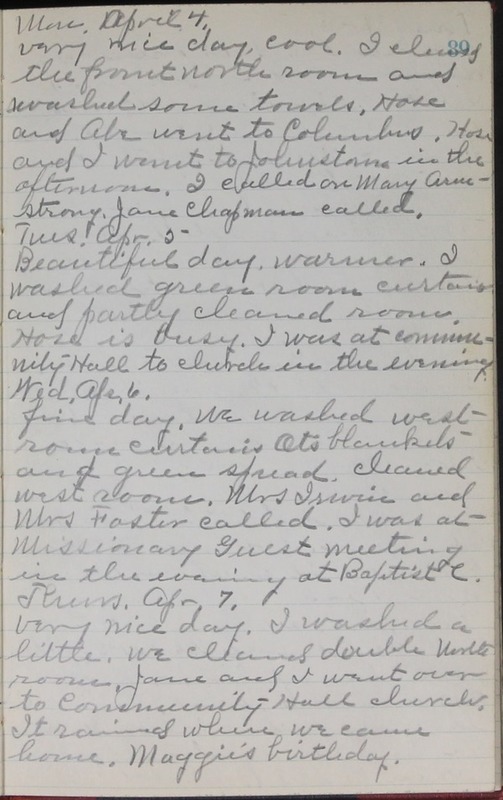 Mon. April 4.
89
very nice day, cool. I cleaned
the front north room and
washed some towels. Hose
and Abe went to Columbus. Hose
and I went to Johnstown in the
afternoon. I called on Mary Arm-
strong. Jane Chapman called.
Tues. Apr. 5
Beautiful day. warmer. I
washed green room curtains
and partly cleaned room.
Hose is busy. I was at commu-
nity Hall to church in the evening.
Wed. Apr. 6.
fine day. We washed west
room curtains Ots blankets
and green spread. cleaned
west room. Mrs Irwin and
Mrs Foster called. I was at
Missionary Guest meeting
in the evening at Baptist C.
Thurs. Apr. 7.
very nice day. I washed a
little. we cleaned double North
room. Jane and I went over
to Community Hall church.
It rained when we came
home. Maggie's birthday.